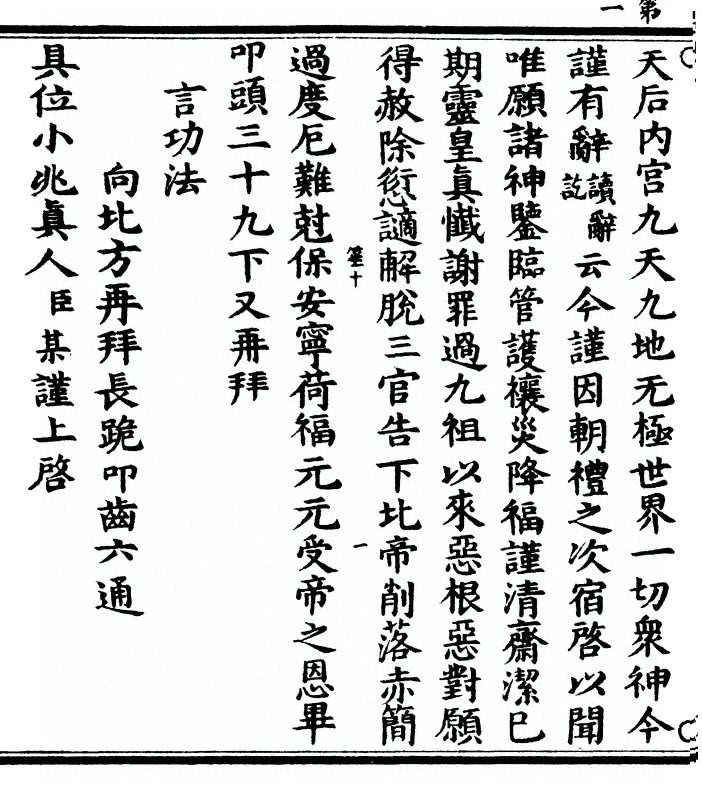 第一
天后内宫九天九地无極世界一切衆神今
謹有辭讀辭訖云今謹因朝禮之次宿啓以聞
唯願諸神鑒臨管護禳災降福謹清齋潔巳
期靈皇真懺謝罪過九祖以來惡根惡對願
得赦除愆讁解脫三官告下北帝削落赤簡
過度厄難尅保安寧荷福元元受帝之恩畢
叩頭三十九下又再拜
言功法
向北方再拜長跪叩齒六通
具位小兆真人臣某謹上啓